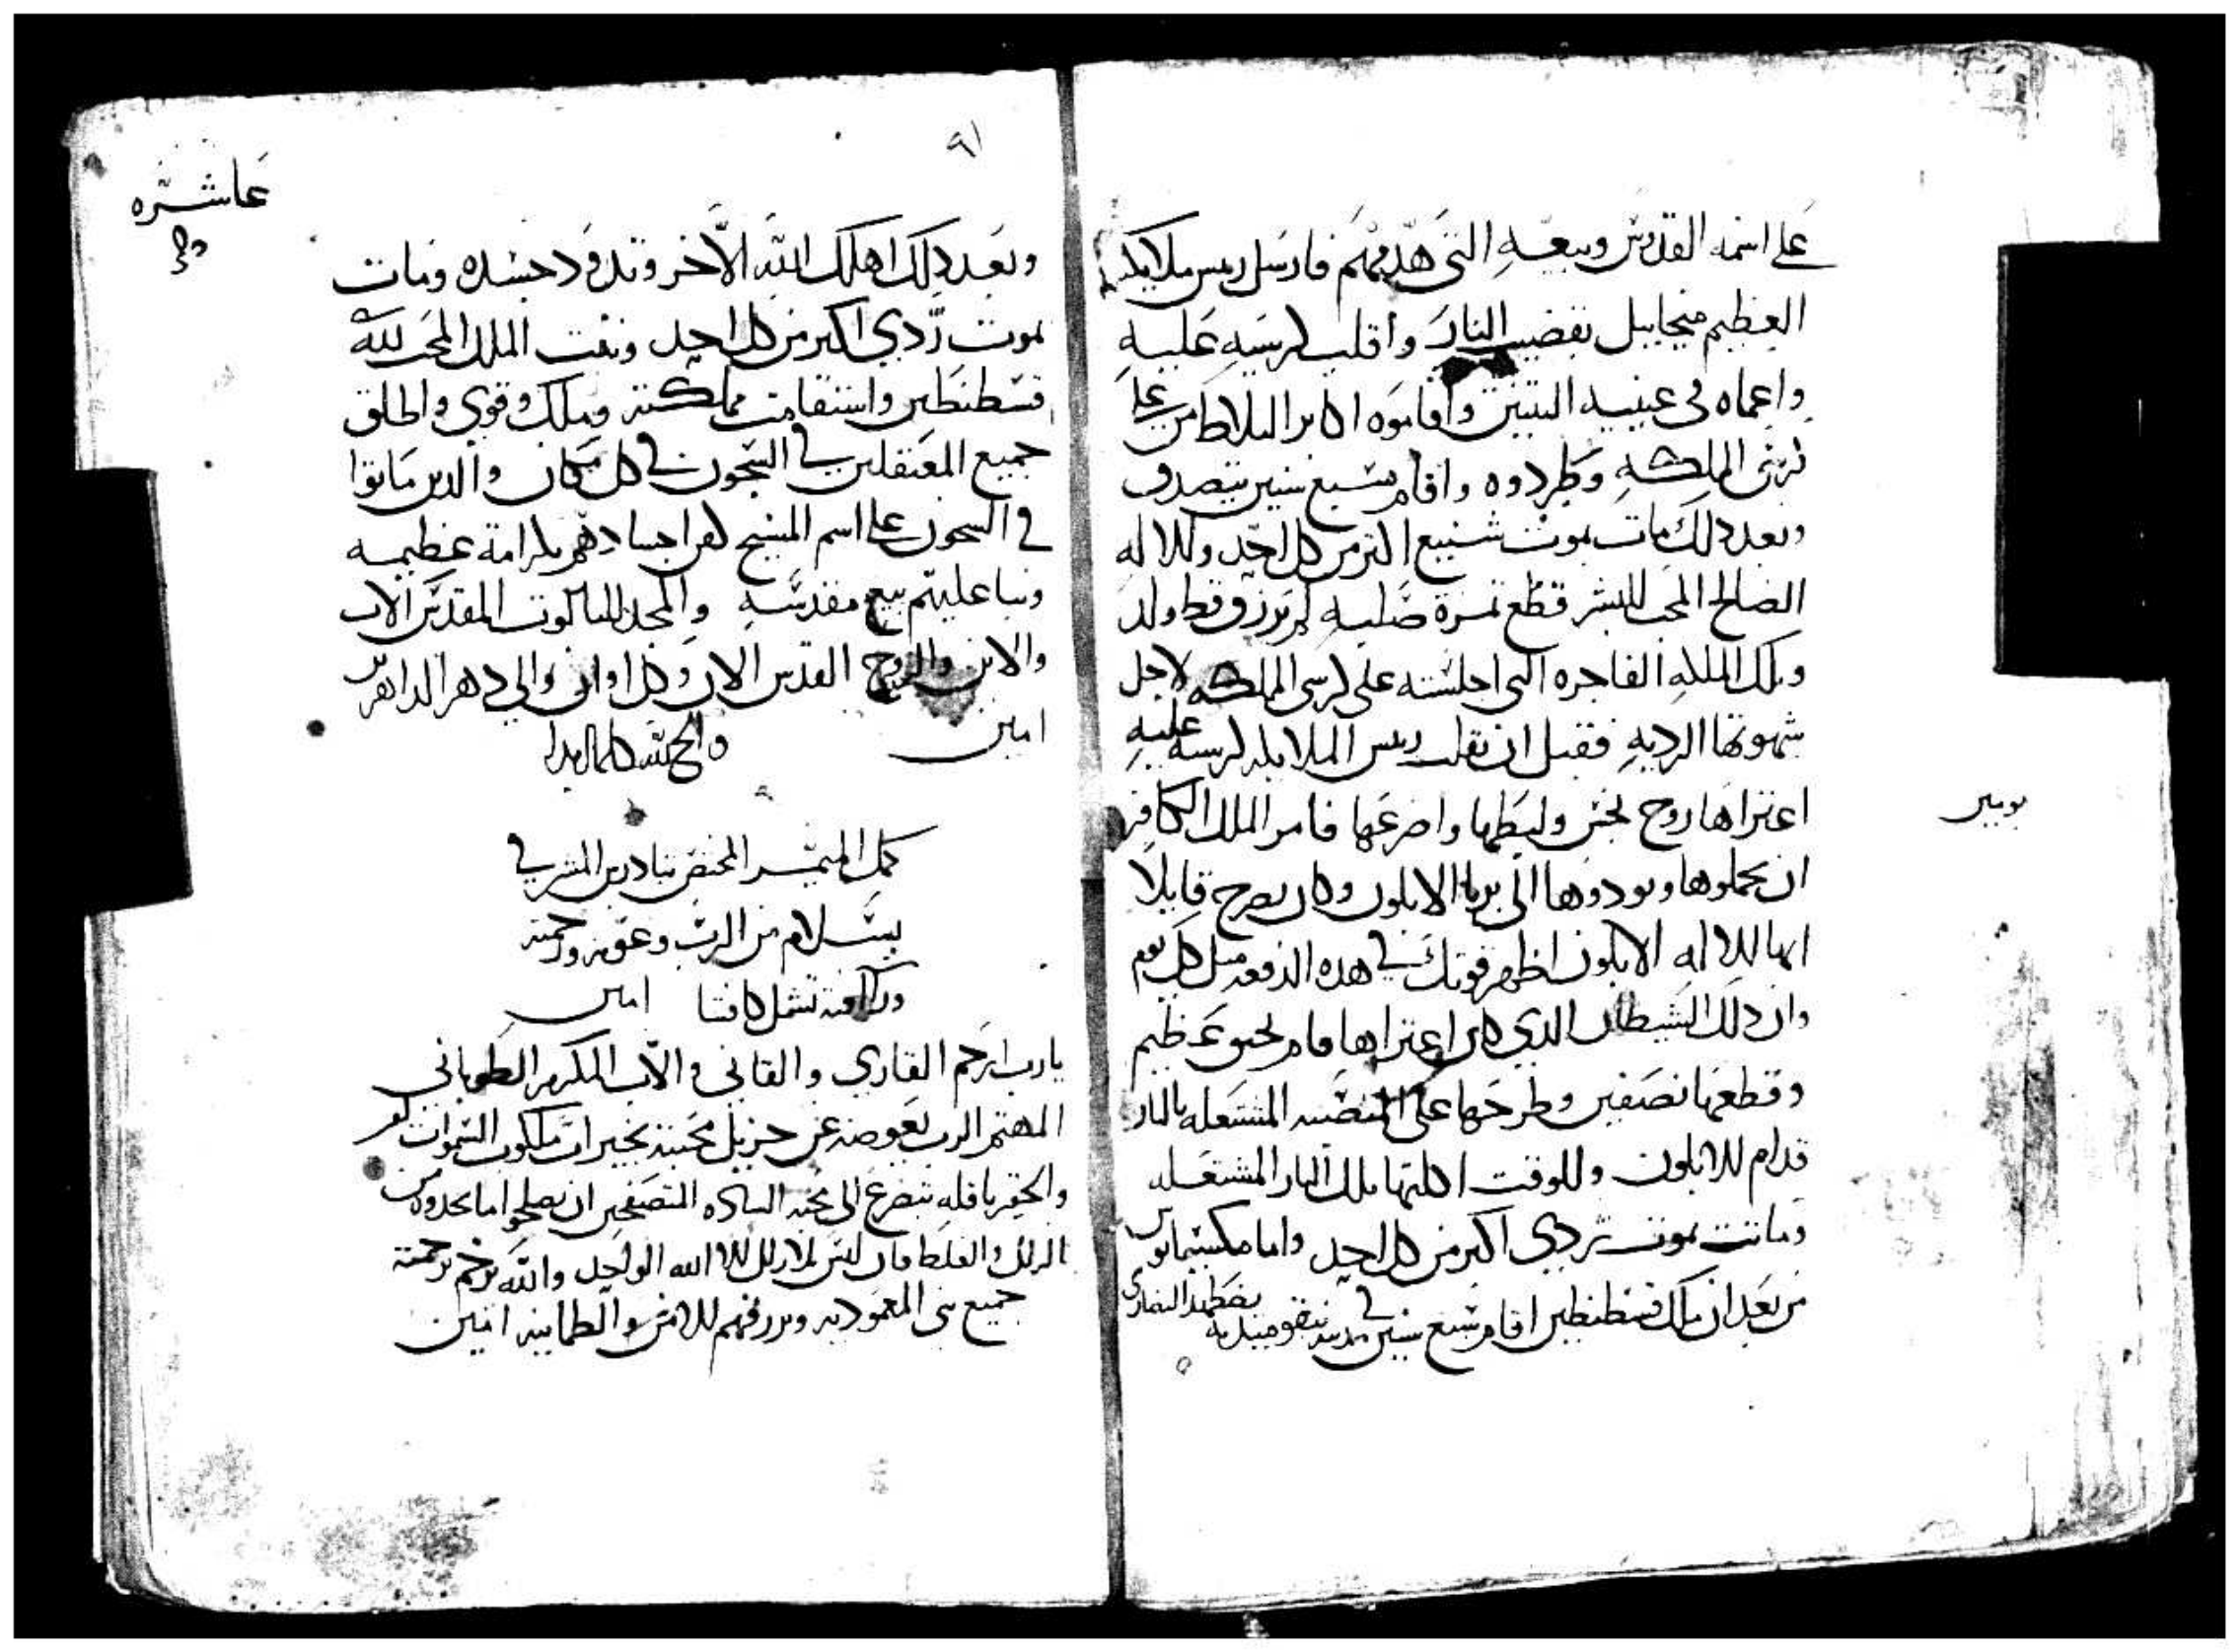 على اسمه القدوس وبيعه التي هدمهم فارسل ريس ملايكته
العظيم ميخاييل بقضيب النار واقلب كرسيه عليه
واعماه في عينيه التنتين واقاموه اكابر البلاط من على
كرسي المملكه وطردوه واقام سبع سنين يتصدق
وبعد دلك مات بموت شنيع اكتر من كل احد وللاله
الصالح المحب للبشر قطع تمرة صلبه لم يرزق قط ولد
وتلك الملكه الفاجره التي اجلسته على كرسي المملكه لاجل
شهوتها الرديه فقبل ان يقلب ريس الملايكه كرسيه عليه
اعتراها روح نجس ولبطها واصرعها فامر الملك الكافر
ان يحملوها ويودوها الى بربا الابلون وكان يصرخ قايلا
ايها الاله الابلون اظهر قوتك في هده الدفعه متل كل يوم
وان دلك الشيطان الدي كان اعتراها قام بحنق عظيم
وقطعها نصفين وطرحها على المنصبه المشتعله بالنار
قدام الابلون وللوقت اكلتها تلك النار المشتعله
وماتت بموت ردي اكتر من كل احد واما مكسيمانوس
من بعد ان ملك قسطنطين اقام سبع سنين في مدينة نيقوميديه يضطهد النصارى
يوبير
٩١
عاشره
وبعد دلك اهلك الله الاخر وتدود جسده ومات
بموت ردي اكتر من كل احد وتبت الملك المحب لله
قسطنطين واستقامت مملكته وملك وقوي واطلق
جميع المعتقلين في السجون في كل مكان والدين ماتوا
في السجون على اسم المسيح كفن اجسادهم بكرامة عظيمه
وبنا عليهم بيع مقدسه والمجد للتالوت المقدس الاب
والابن والروح القدس الان وكل اوان والى دهر الداهرين
امين والحمد لله دايما ابدا
كمل الميمر المختص بتادرس المشرقي
بسلام من الرب وعونه ورحمته
وبركته تشمل كافتنا امين
يارب ارحم القاري والقاني والاب المكرم الطوباني
المهتم الرب يعوضه عن جزيل محبته بخيرات ملكوت السموات
والحقير ناقله يتضرع الى محبة الساده المتصفحين ان يصلحوا ما يجدوه من
الزلل والغلط فان ليس بلا زلل الا الله الواحد والله يرحم برحمته
جميع بني المعموديه ويرزقهم الامن والطمانينه امين